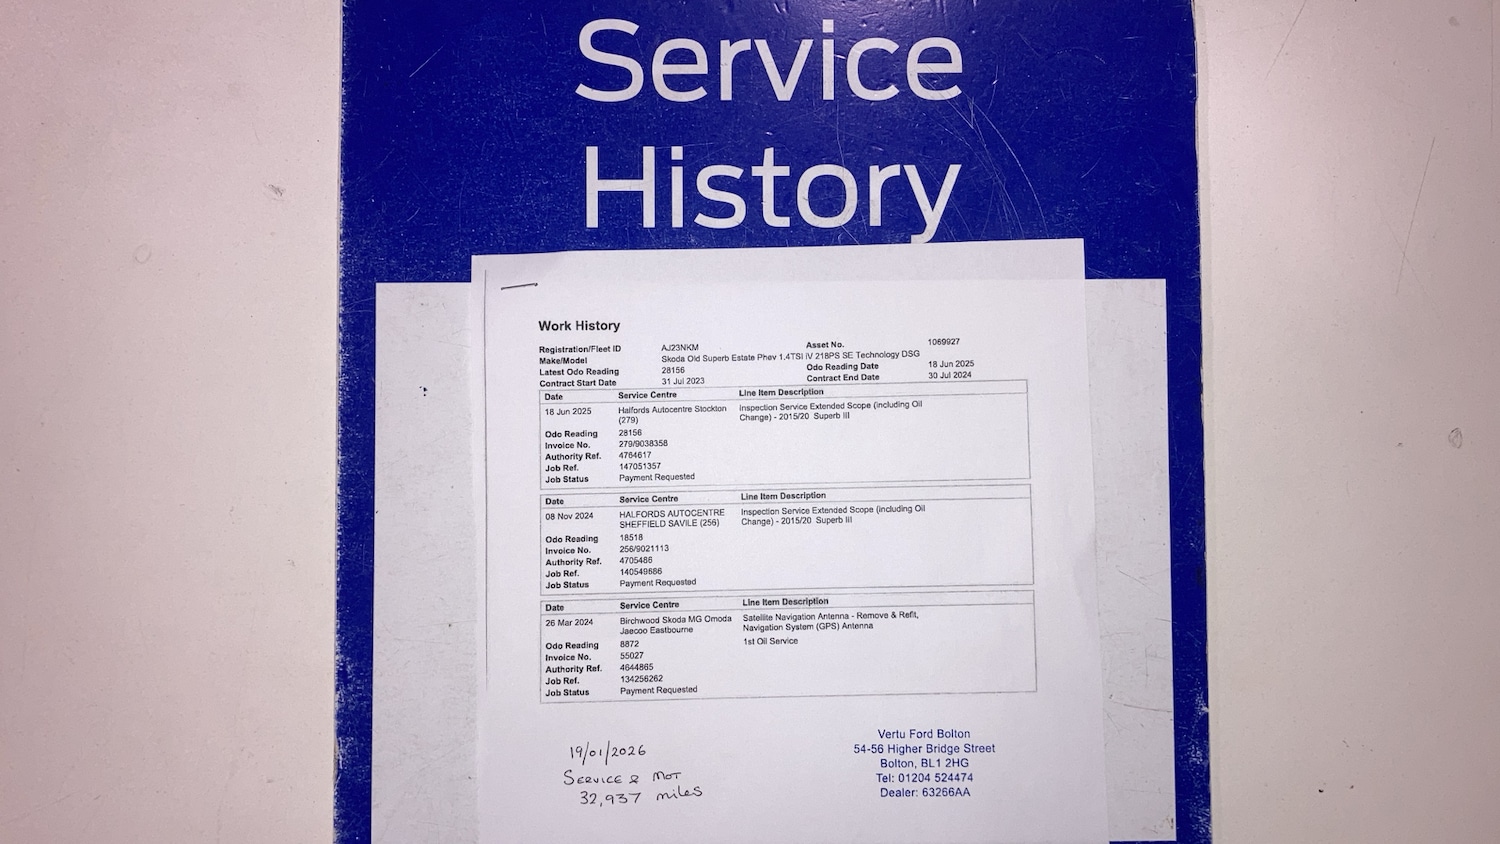 Service
History
Work History
Registration/Fleet ID AJ23NKM Asset No. 1069927
Make/Model Skoda Old Superb Estate Phev 1.4TSI iV 218PS SE Technology DSG
Latest Odo Reading 28156 Odo Reading Date 18 Jun 2025
Contract Start Date 31 Jul 2023 Contract End Date 30 Jul 2024
Date Service Centre Line Item Description
18 Jun 2025 Halfords Autocentre Stockton Inspection Service Extended Scope (including Oil
(279) Change) - 2015/20 Superb III
Odo Reading 28156
Invoice No. 279/9038358
Authority Ref. 4764617
Job Ref. 147051357
Job Status Payment Requested
Date Service Centre Line Item Description
08 Nov 2024 HALFORDS AUTOCENTRE Inspection Service Extended Scope (including Oil
SHEFFIELD SAVILE (256) Change) - 2015/20 Superb III
Odo Reading 18518
Invoice No. 256/9021113
Authority Ref. 4705486
Job Ref. 140549686
Job Status Payment Requested
Date Service Centre Line Item Description
26 Mar 2024 Birchwood Skoda MG Omoda Satellite Navigation Antenna - Remove & Refit,
Jaecoo Eastbourne Navigation System (GPS) Antenna
Odo Reading 8872 1st Oil Service
Invoice No. 55027
Authority Ref. 4644865
Job Ref. 134256262
Job Status Payment Requested
19/01/2026
SERVICE & MOT
32,937 miles
Vertu Ford Bolton
54-56 Higher Bridge Street
Bolton, BL1 2HG
Tel: 01204 524474
Dealer: 63266AA